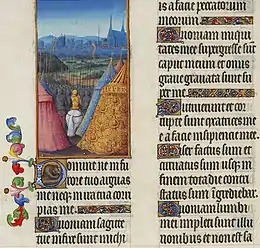 Domine ne in fu
rore tuo arguas
me neq; in ira tua cor
ripias me.
Quoniam sagitte
tue infixe sunt michi
is a facie peccatorum
meorum.
Quoniam iniqui
tates mee supergresse sūt
caput meum et onus
grave gravata sunt su
per me.
Putruerunt et cor
rupte sunt cicatrices mee
a facie insipiencie mee.
Miser factus sum et
curvatus sum usq; in
finem tota die contri
status sum īgrediebar.
Quoniam lumbi
mei impleti sunt illu
sionibus et non est sa